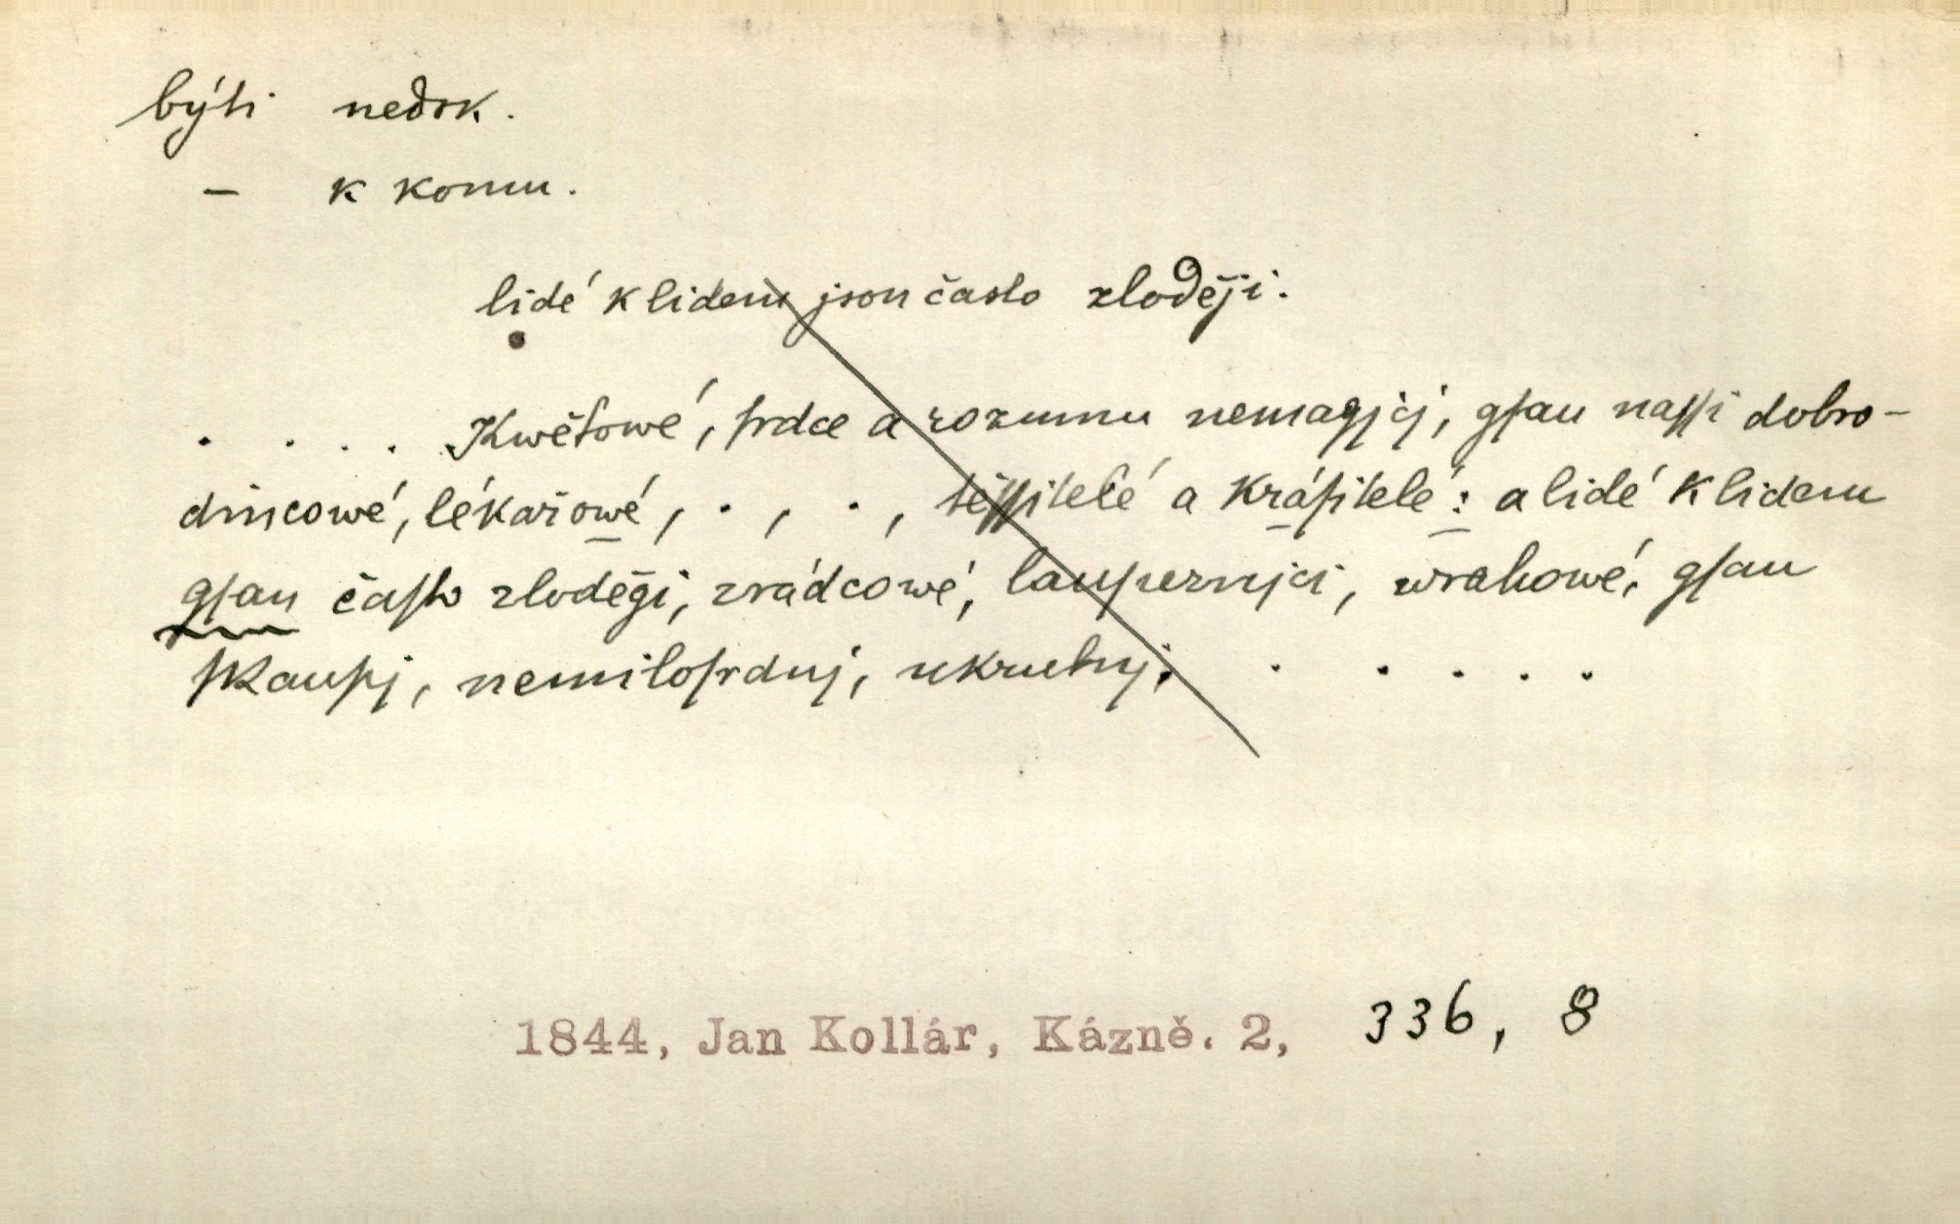 býti nedok.
– k komu.
lidé k lidem jsou často zloději.
. . . . Kwětowé, ſrdce a rozumu nemagjcj, gſau naſſi dobro-
dincowé, lékařowé, . , . , těſſitelé a kráſitelé: a lidé k lidem
gſau čaſto zloděgi, zrádcowé, laupeznjci, wrahowé, gſau
ſkaupj, nemiloſrdnj, ukrutnj. . . . . .
1844, Jan Kollár, Kázně. 2, 336, 8